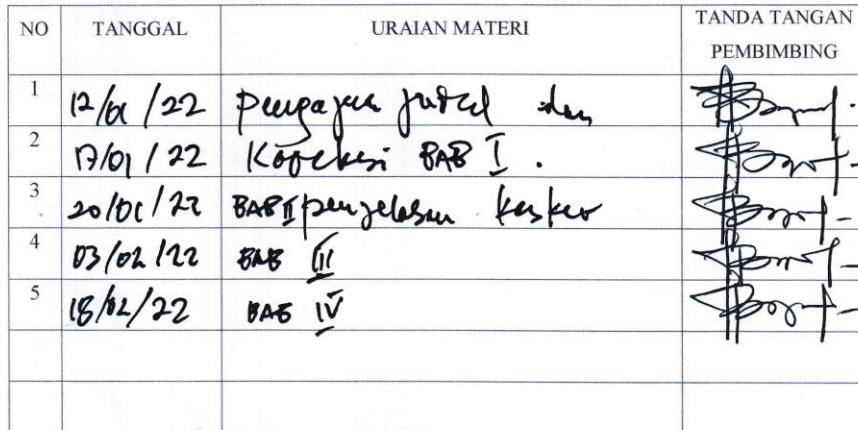 NO TANGGAL URAIAN MATERI TANDA TANGAN PEMBIMBING
1 12/01/22 pengajuan judul dan
2 17/01/22 Koreksi BAB I.
3 20/01/22 BAB II penjelasan
4 03/02/22 BAB III
5 18/02/22 BAB IV